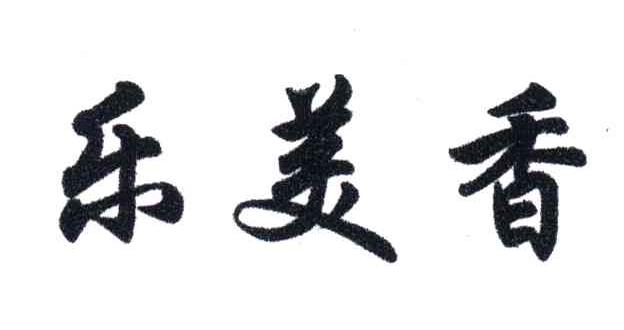 乐美香